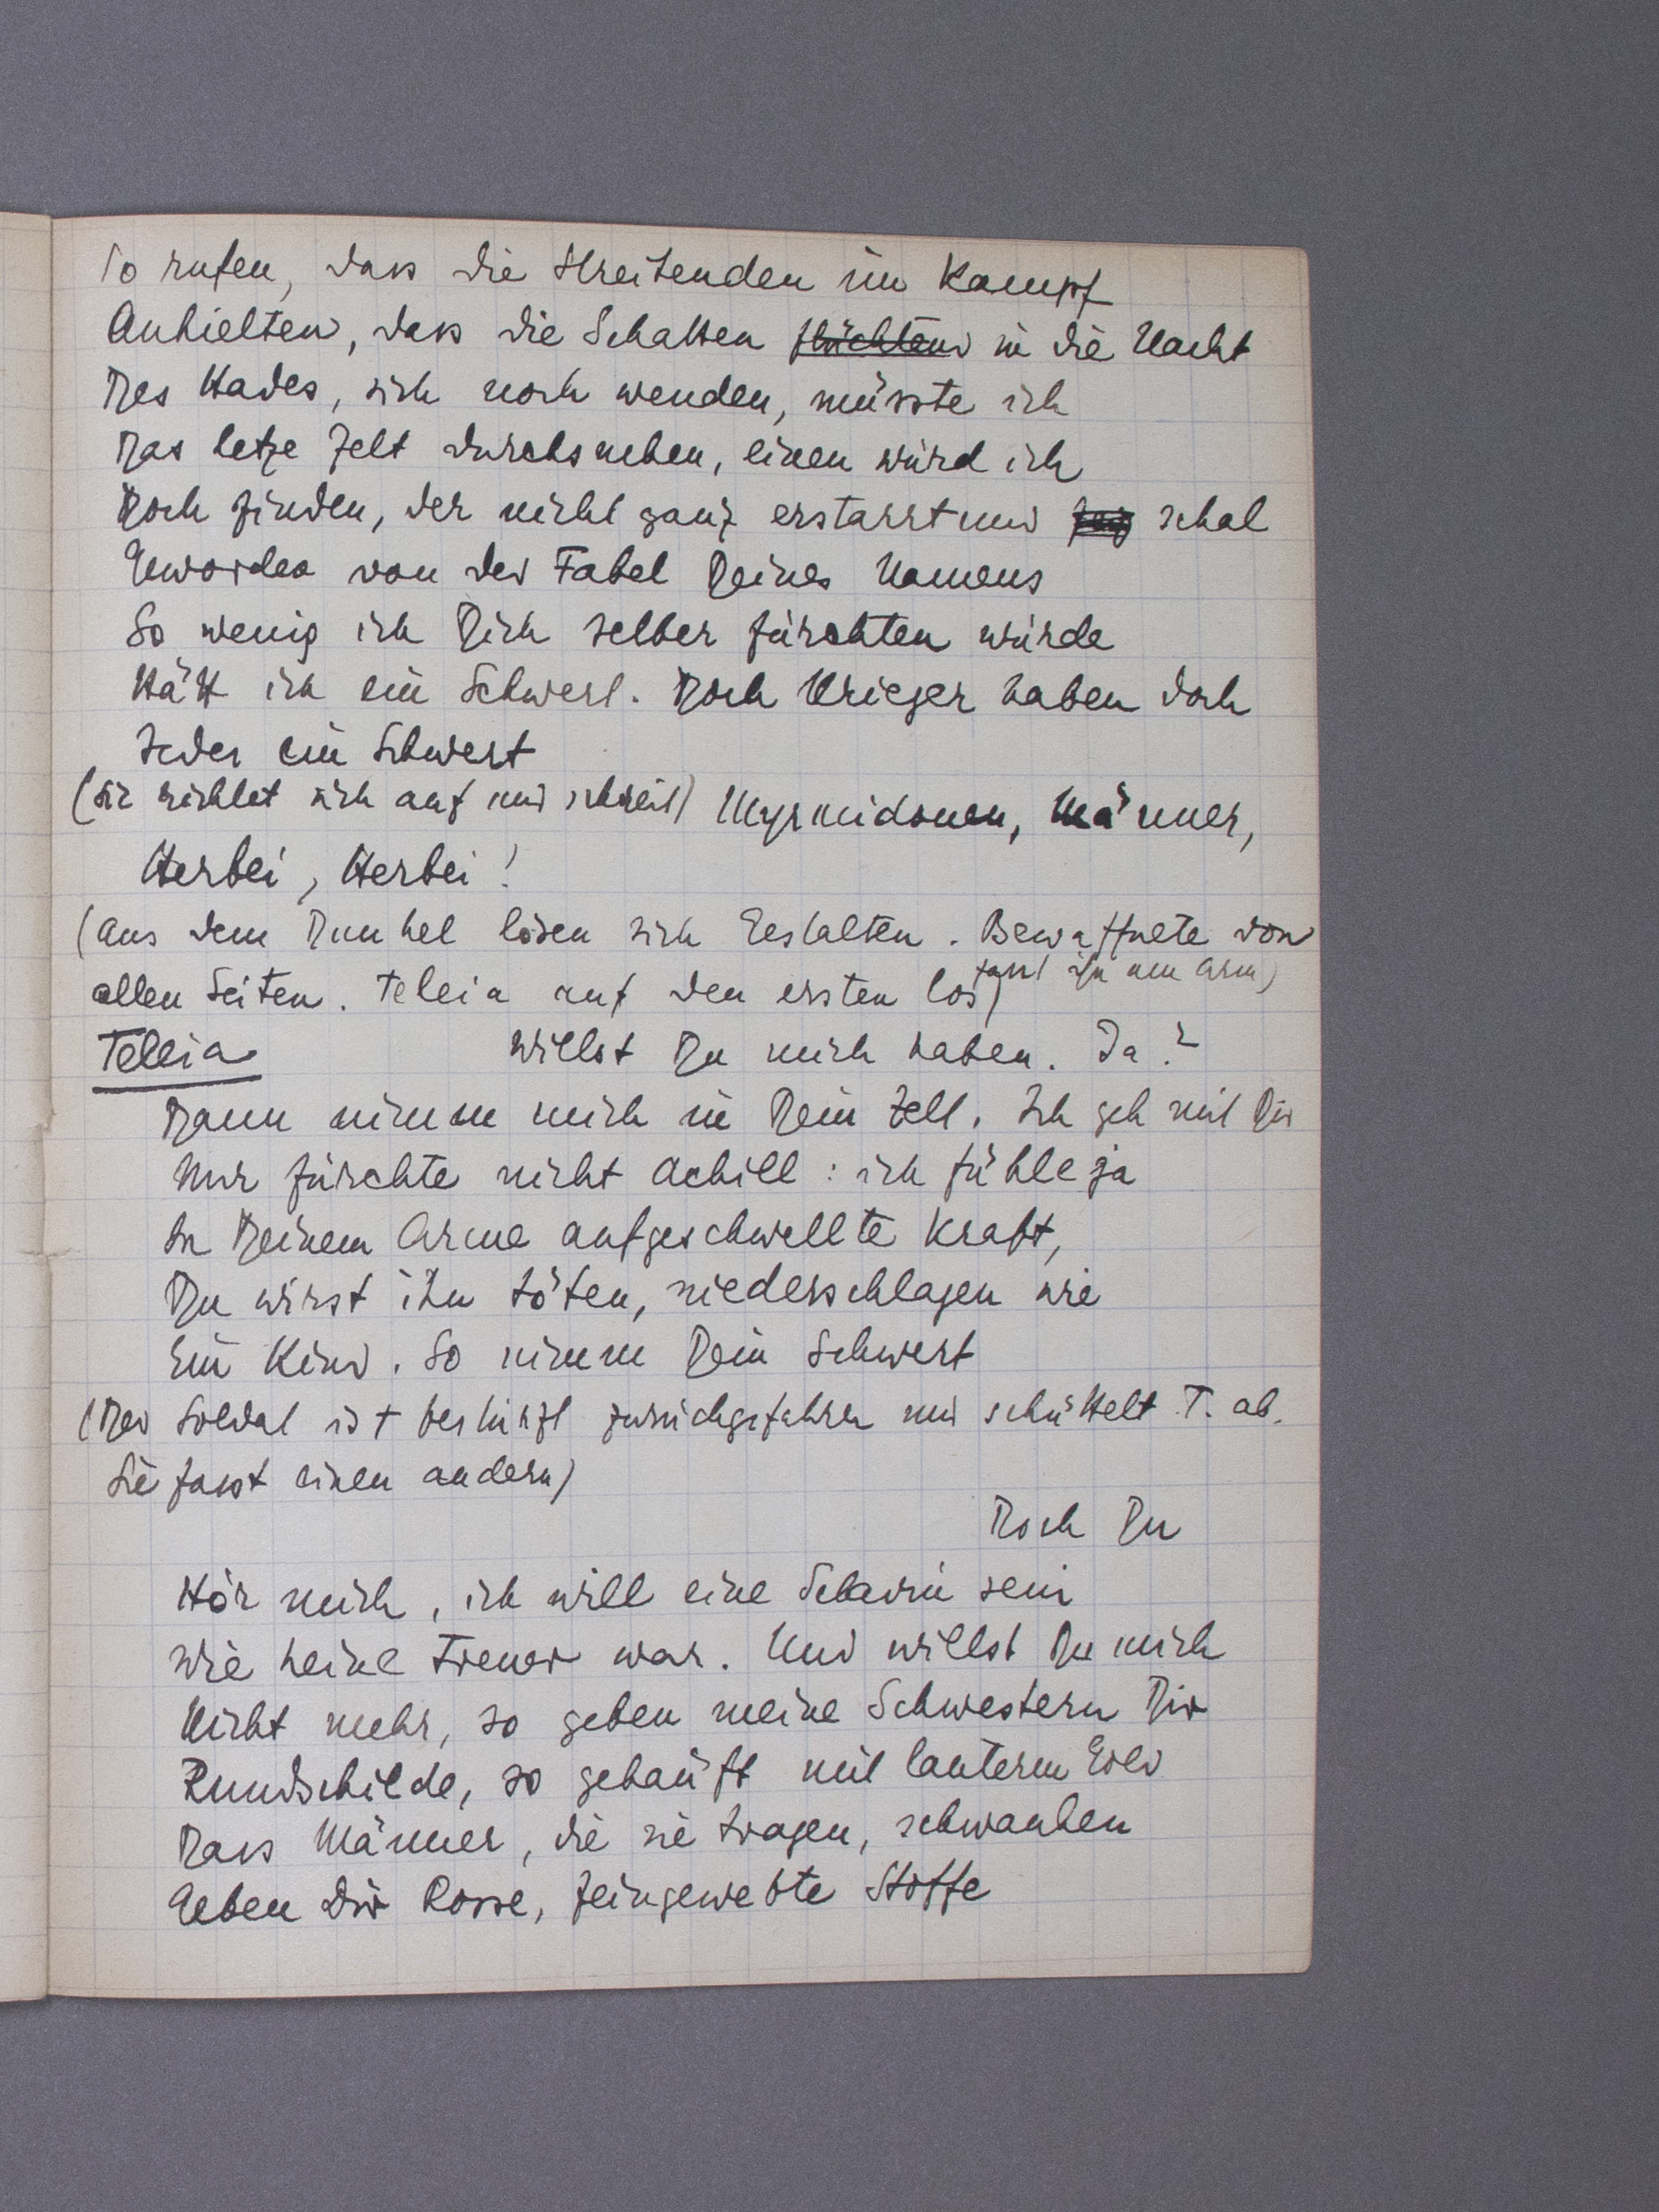 So rufen, dass die Streitenden im Kampf
Anhielten, dass die Schatten flüchtend in die Nacht
Des Hades, sich noch wenden, müsste ich
Das letze Zelt durchsuchen, einen würd ich
Doch finden, der nicht ganz erstarrt und schal
Geworden von der Fabel Deines Namens
So wenig ich Dich selber fürchten würde
Hätt ich ein Schwert. Doch Krieger haben doch
Jeder ein Schwert
(sie richtet sich auf und schreit) Myrmidonen, Männer,
Herbei, Herbei!
(aus dem Dunkel lösen sich Gestalten. Bewaffnete von
allen Seiten. Teleia auf den ersten los, fasst ihn am Arm)
Teleia Willst Du mich haben. Ja?
Dann nimm mich in Dein Zelt. Ich geh mit Dir
Nur fürchte nicht Achill: ich fühle ja
In Deinem Arme aufgeschwellte Kraft,
Du wirst ihn töten, niederschlagen wie
Ein Kind. So nimm Dein Schwert
(Der Soldat ist bestürzt zurückgefahren und schüttelt T. ab.
Sie fasst einen andern)
Doch Du
Hör mich, ich will eine Sclavin sein
Wie keine treuer war. Und willst Du mich
Nicht mehr, so geben meine Schwestern Dir
Rundschilde, so gehäuft mit lauterm Gold
Dass Männer, die sie tragen, schwanken
Geben Dir Rosse, feingewebte Stoffe